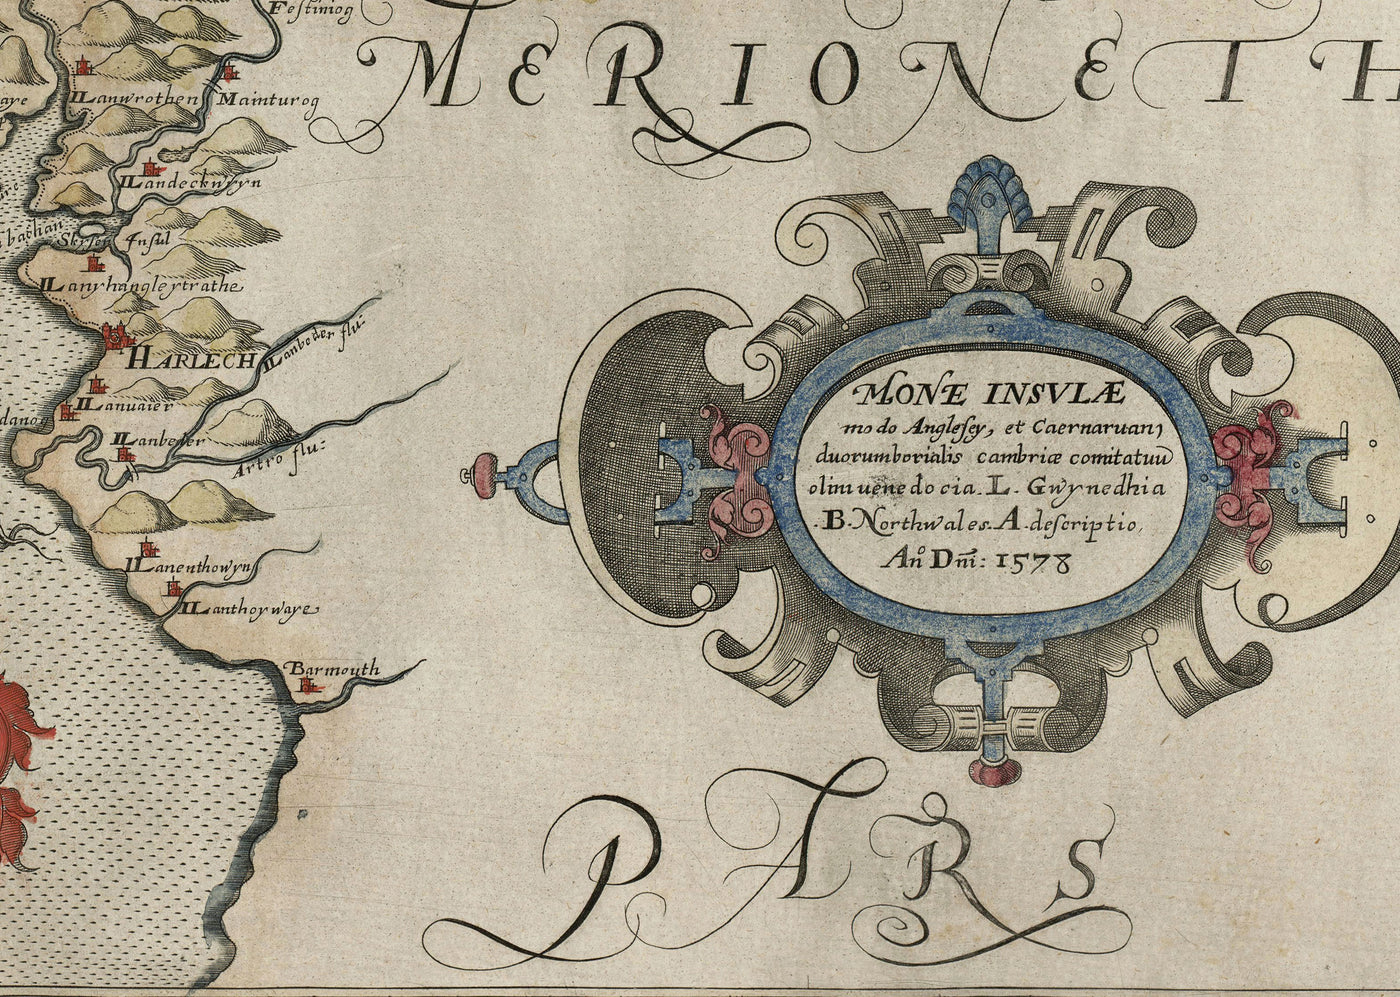 Festiniog
MERIONETH
ILanwrothen
Mainturog
ILandeckwyn
Skisey Insul
ILanyhangleytrathe
HARLECH
ILanbeder flu:
ILanuaier
ILanbeder
Artro flu:
ILanenthowyn
ILanthoywaye
Barmouth
MONÆ INSVLÆ
modo Anglesey, et Caernaruan,
duorum borialis cambriæ comitatuu
olim uenedocia. L. Gwynedhia
.B. Northwales. A. descriptio,
Añ Dñi: 1578
PARS